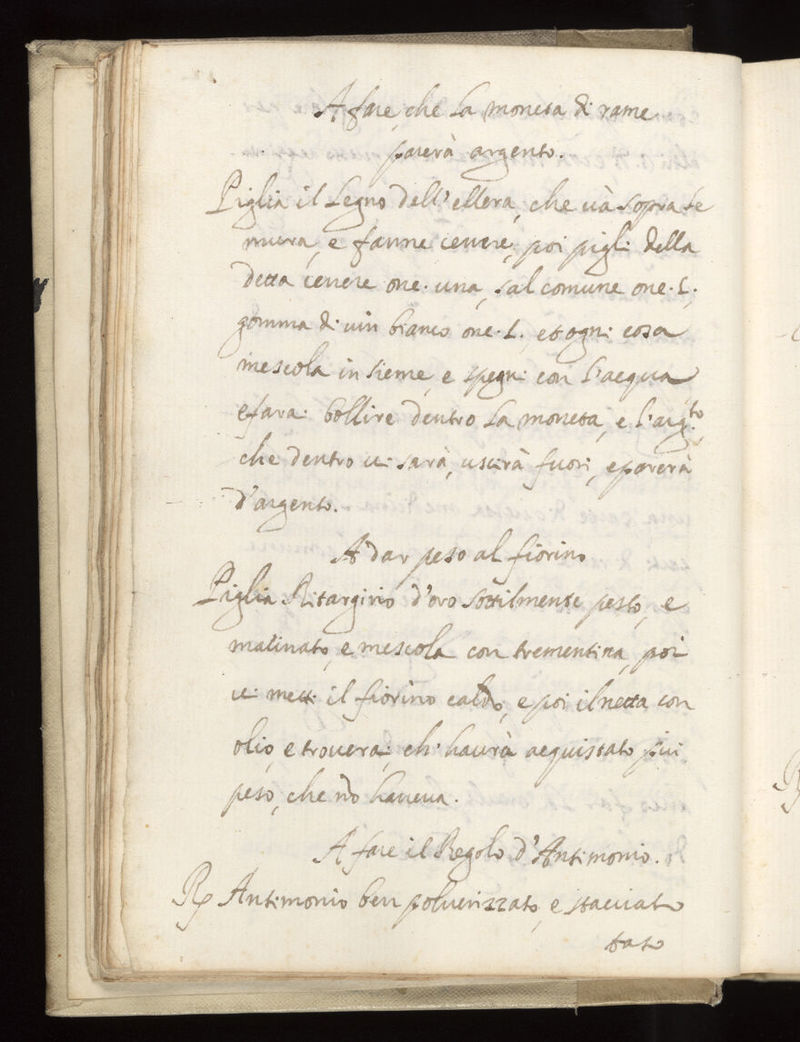 A fare, che la moneta di rame
parerà argento.
Piglia il legno dell'ellera, che và sopra le
mura, e fanne cenere, poi pigli della
detta cenere onc. una, sal comune onc. 1.,
gomma di vin bianco onc. 1., et ogni cosa
mescola insieme, e spegni con l'acqua
e farai bollire dentro la moneta, e l'arg.to
che dentro vi sarà, uscirà fuori, e parerà
d'argento.
A dar peso al fiorino
Piglia Ritargirio d'oro sottilmente pesto, e
macinato, e mescola con trementina, poi
vi metti il fiorino caldo, e poi il netta con
olio, e troverai ch'haurà acquistato più
peso, che nõ haueua.
A fare il Regolo d'Antimonio.
Rp Antimonio ben poluerizzato, e stacciato